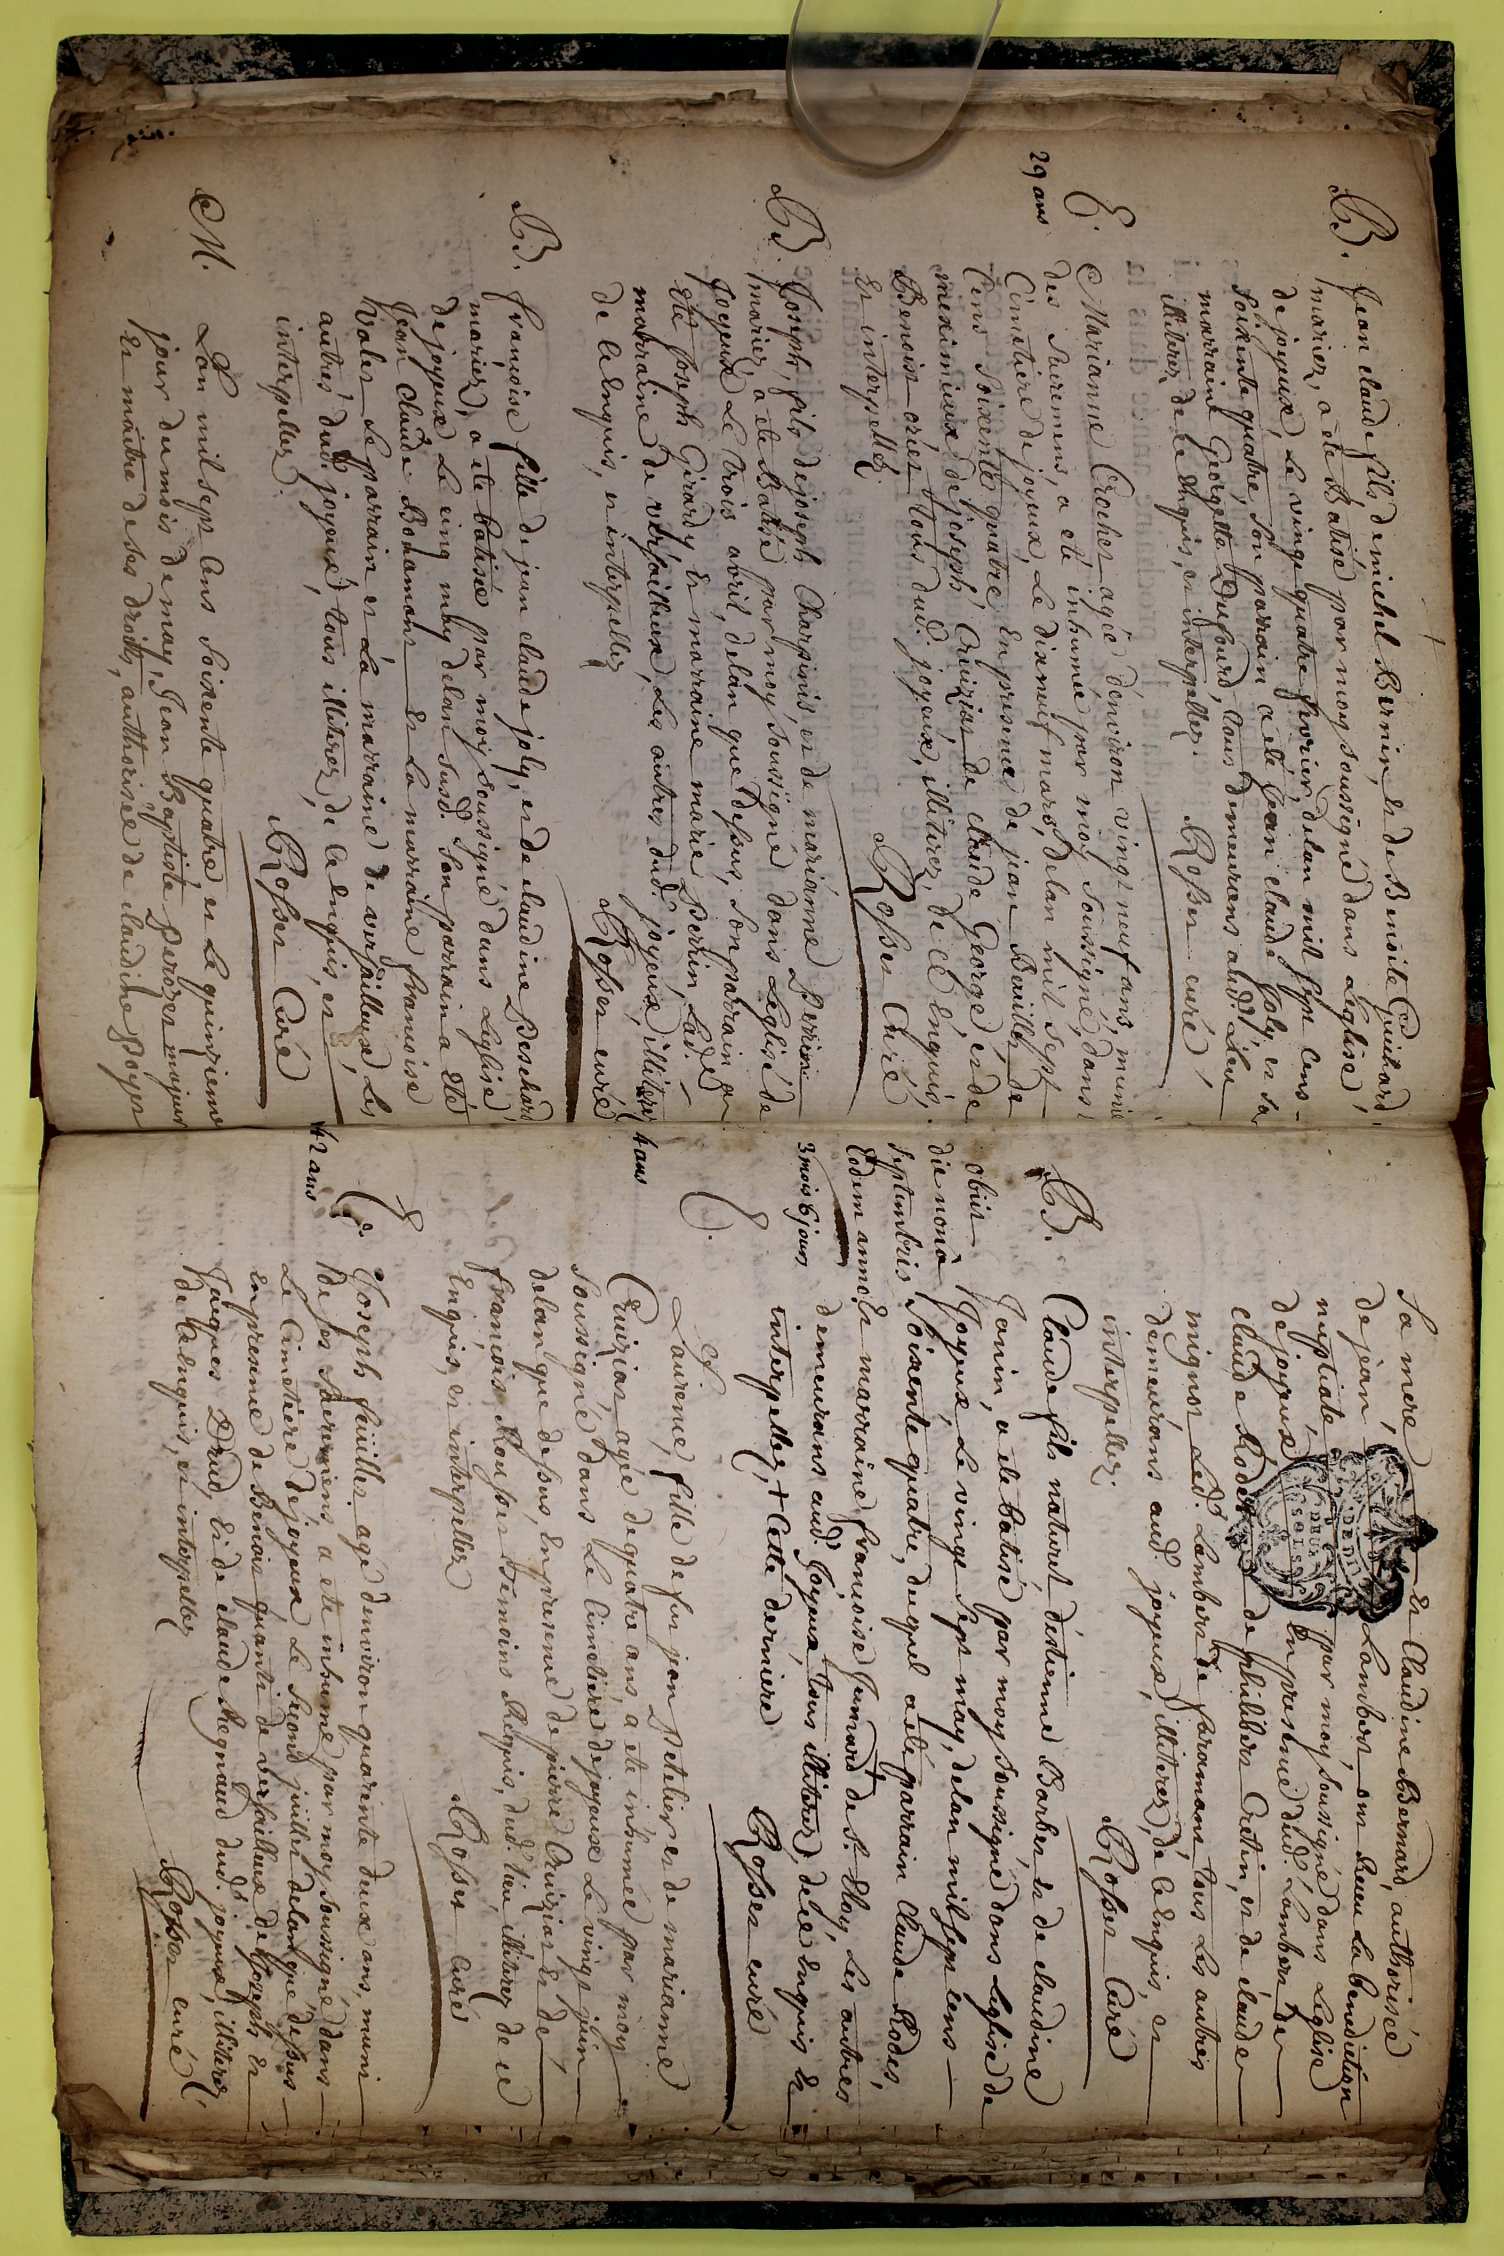 B. Jean claude fils de michel Bernin, et de Benoite Guichard
mariez, a ete Batisé par moy soussigné dans Leglise
de joyeux, Le vingt quatre fevrier, delan mil sept cens
soixente quatre, son parrain a eté jean claude joly et sa
marraine Georgette Dufourd, tous demeurans aud. Lieu
illiterez, de ce enquis, et interpellez.
Rosset curé
E.
29 ans
Marianne Crochet agée d'environ vingt neuf ans, munie
des sacremens, a eté inhumée par moy soussigné, dans
Cimetiere de joyeux, Le dixneuf mars, delan mil sept
cens soixente quatre, en presence de jean Bouillet de
meximieux de joseph Cruiziat de claude George, et de
Benoist orset tous dud. joyeux, illiterez, de ce enquis,
et interpellez
Rosset Curé
B. Joseph, fils de joseph Charpinis et de marianne Perrin
mariez, a ete Batisé par moy soussigné dans Leglise de
joyeux Le trois avril, delan que dessus, son parrain a
eté joseph Girard, et marraine marie Perrin, Lad.
marraine de versailleux, Les autres dud. joyeux, illiterez
de ce enquis, et interpellez
Rosset curé
B. francoise fille de jean claude joly, et de claudine Peschard
mariez, a ete batisée par moy soussigné dans Leglise
de joyeux Le cinq may delan susd. son parrain a eté
Jean claude Bonamour et La marraine francoise
Volet Le parrain et La marraine de versailleux, Les
autres dud. joyeux, tous illiterez, de ce enquis, et
interpellez.
Rosset Curé
M. Lan mil sept cens soixente quatre, et Le quinzieme
jour du mois de may, Jean Baptiste Perozet majeur
et maitre de ses droits, authorisé de claudine Poyet
sa mere et Claudine Bernard, authorisée
de jean Lambert ont receu La benediction
nuptiale, par moy soussigné dans Leglise
de joyeux en presence dud. Lambert de
claude Rodet de philibert Cretin, et de claude
mignot Led. Lambert de faramant tous Les autres
demeurans aud. joyeux, illiterez, de ce enquis, et
interpellez.
Rosset Curé
B. Claude fils naturel d'estienne Barbet et de claudine
Janin, a ete batisé par moy soussigné dans Leglise de
Joyeux, Le vingt sept may, delan mil sept cens
soixente quatre, duquel a eté parrain Claude Rodet,
et marraine francoise Jumard de St. Eloy, Les autres
demeurans aud. Joyeux tous illiterez, de ce enquis et
interpellez, + Cette derniere
Rosset curé
obiit
die nona
septembris
Eodem anno.
3 mois 6 jours
E.
4 ans
Laurence, fille de feu jean Petelier et de marianne
Cruiziat agée de quatre ans, a ete inhumée par moy
soussigné dans Le Cimetiere de joyeux Le vingt juin
delan que dessus, en presence de pierre Cruiziat et de
francois Rousset temoins Requis, dud. Lieu, illiterez de ce
Enquis, et interpellez
Rosset Curé
E.
42 ans
Joseph feuillet agé denviron quarente deux ans, muni
de ses sacremens, a ete inhumé, par moy soussigné, dans
Le Cimetiere de joyeux, Le second juillet delan que dessus
en presence de Benoit quanti de versailleux, de joseph et
Jacques Druid et de claude Regnaud dud. joyeux, illiterez,
de ce enquis, et interpellez
Rosset curé
DE DI
DEUX
SOLS